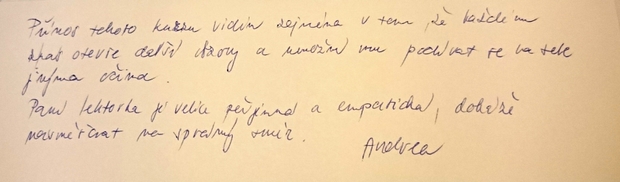 Přínos tohoto kurzu vidím zejména v tom, že každému
otevře další obzory a umožní mu podívat se na sebe
jinýma očima.
Paní lektorka je velice příjemná a empatická, dokáže
nasměřovat na správný směr.
Andrea